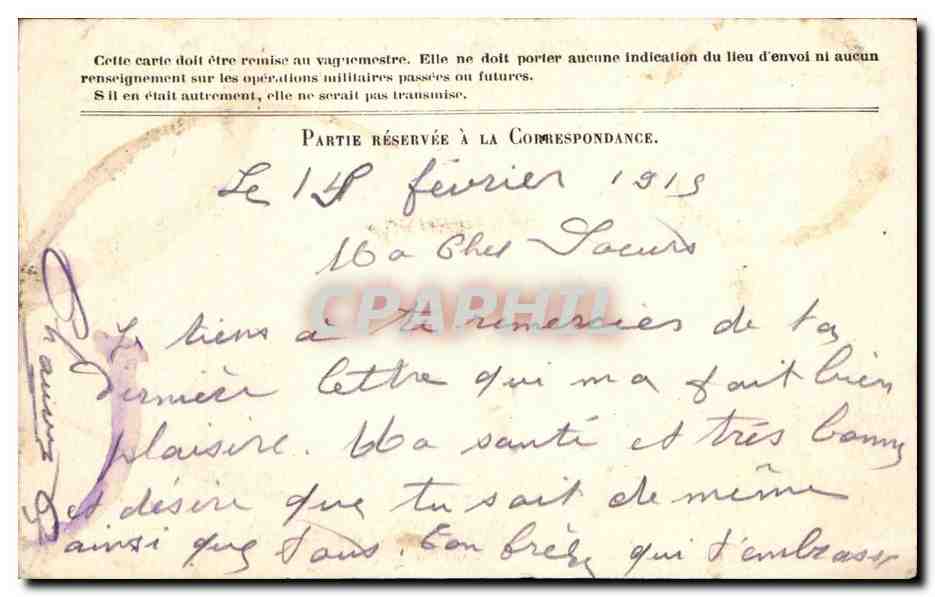 Cette carte doit être remise au vaguemestre. Elle ne doit porter aucune indication du lieu d'envoi ni aucun
renseignement sur les opérations militaires passées ou futures.
S'il en était autrement, elle ne serait pas transmise.
PARTIE RÉSERVÉE À LA CORRESPONDANCE.
Le 14 février 1915
Ma Cher Soeurs
CPAPHIL
Je tiens a te remercies de ta
dernière lettre qui ma fait bien
plaisire. Ma santé et très bonne
et désire que tu soit de même
ainsi que tous. Ton frère qui t'embrasse